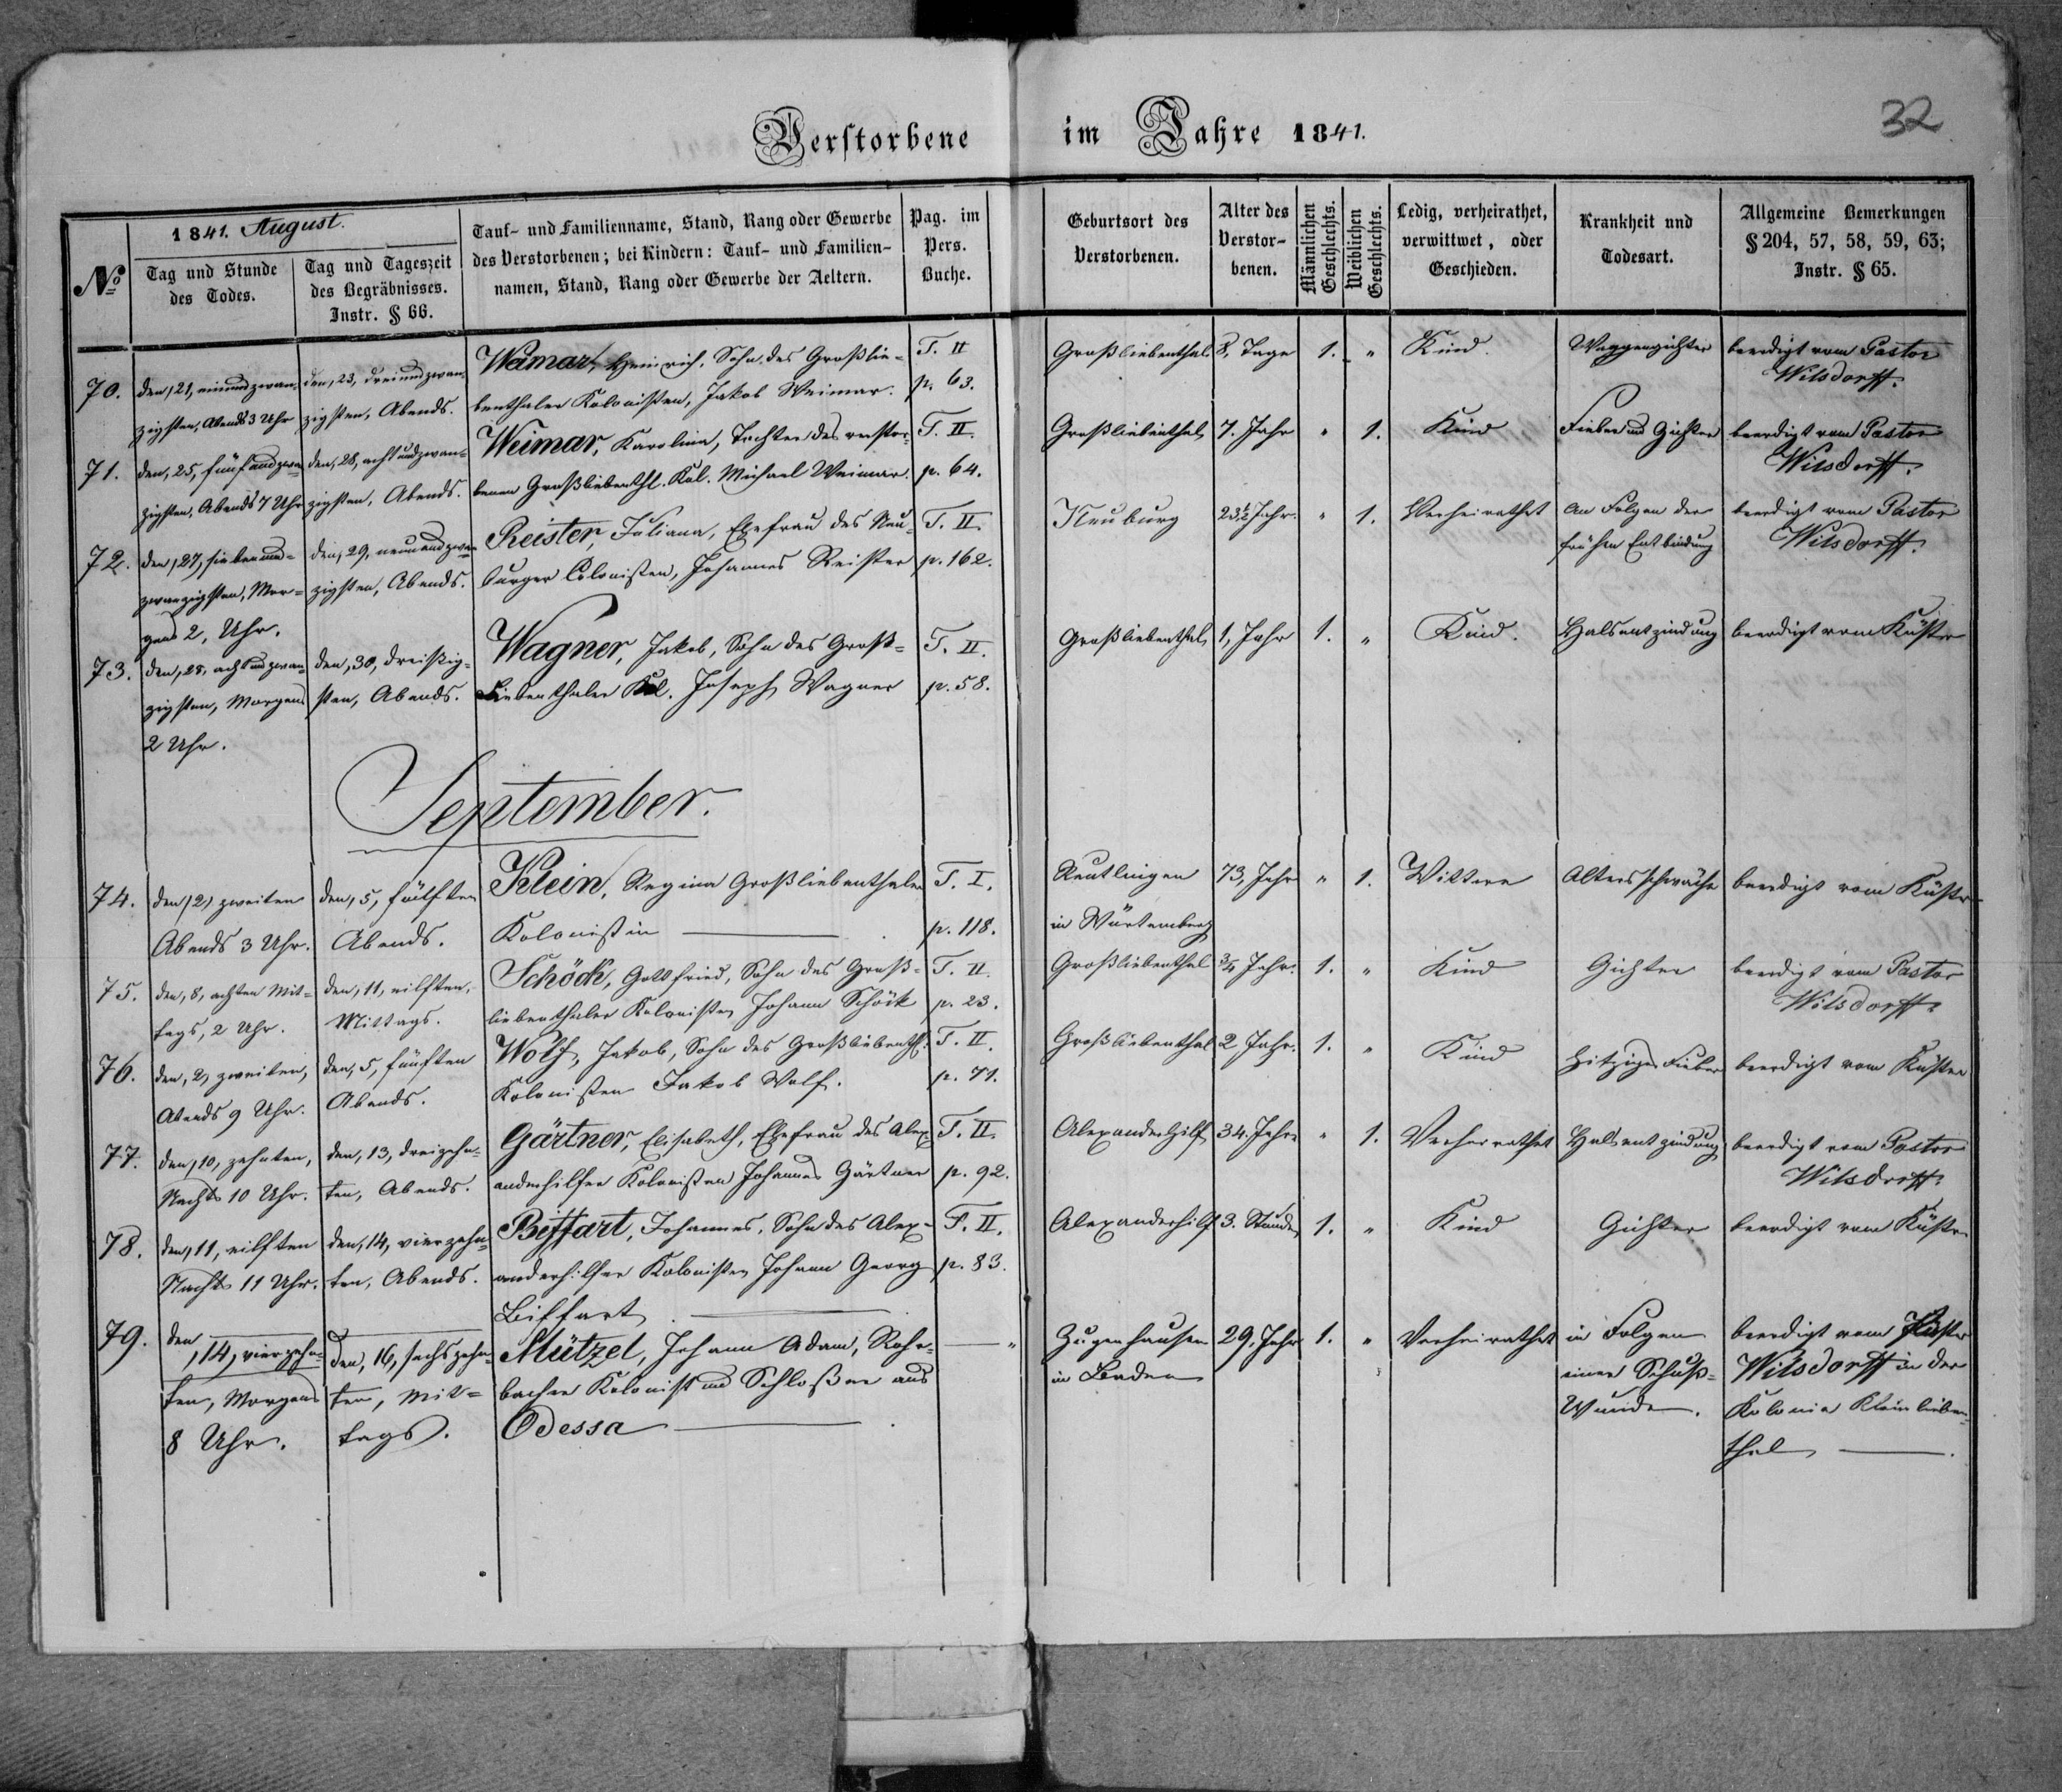 Verstorbene im Jahre 1841.
32
1841. August.
№
Tag und Stunde
des Todes.
Tag und Tageszeit
des Begräbnisses.
Instr. § 66.
Tauf- und Familienname, Stand, Rang oder Gewerbe
des Verstorbenen; bei Kindern: Tauf- und Familien-
namen, Stand, Rang oder Gewerbe der Aeltern.
Pag. im
Pers.
Buche.
Geburtsort des
Verstorbenen.
Alter des
Verstor-
benen.
Männlichen
Geschlechts.
Weiblichen
Geschlechts.
Ledig, verheirathet,
verwittwet, oder
Geschieden.
Krankheit und
Todesart.
Allgemeine Bemerkungen
§ 204, 57, 58, 59, 63;
Instr. § 65.
70.
den, 21, einundzwan-
zigsten, Abends 3 Uhr
den, 23, dreiundzwan-
zigsten, Abends.
Weimar, Heinrich, Sohn des Großlie-
benthaler Kolonisten, Jakob Weimar.
T. II
p. 63.
Großliebenthal
8, Tage
1.
"
Kind.
beerdigt vom Pastor
Wilsdorff.
71.
den, 25, fünfundzwan-
zigsten, Abends 7 Uhr
den, 28, achtundzwan-
zigsten, Abends.
Weimar, Karolina, Tochter des verstor-
benen Großliebenthl. Kol. Michael Weimar.
T. II.
p. 64.
Großliebenthal
7. Jahr
"
1.
Kind
Fieber und Gichter
beerdigt vom Pastor
Wilsdorff.
72.
den, 27, siebenund-
zwanzigsten, Mor-
gens 2, Uhr.
den, 29, neunundzwan-
zigsten, Abends.
Reister, Juliana, Ehefrau des Neu-
burger Colonisten, Johannes Reister
T. II.
p. 162.
Neuburg
23½ Jahr.
"
1.
Verheirathet
An Folgen der
frühen Entbindung
beerdigt vom Pastor
Wilsdorff.
73.
den, 28, achtundzwan-
zigsten, Morgens
2 Uhr.
den, 30, dreißig-
sten, Abends.
Wagner, Jakob, Sohn des Groß-
Liebenthaler Kol. Joseph Wagner
T. II.
p. 58.
Großliebenthal
1, Jahr
1.
"
Kind.
Halsentzindung
beerdigt vom Küster
September.
74.
den, 2, zweiten
Abends 3 Uhr.
den, 5, fünften
Abends.
Klein, Regina Großliebenthaler
Kolonistin
T. I.
p. 118.
Reutlingen
in Würtemberg
73, Jahr
"
1.
Wittwe
Altersschwäche
beerdigt vom Küster
75.
den, 8, achten Mit-
tags, 2 Uhr.
den, 11, eilften,
Mittags.
Schöck, Gottfried, Sohn des Groß-
liebenthaler Kolonisten Johann Schöck
T. II.
p. 23.
Großliebenthal
¾ Jahr.
1.
"
Kind
Gichter
beerdigt vom Pastor
Wilsdorff.
76.
den, 2, zweiten,
Abends 9 Uhr.
den, 5, fünften
Abends.
Wolf, Jakob, Sohn des Großliebenthl.
Kolonisten Jakob Wolf.
T. II.
p. 71.
Großliebenthal
2 Jahr.
1.
"
Kind
Hitziges Fieber
beerdigt vom Küster
77.
den, 10, zehnten,
Nachts 10 Uhr.
den, 13, dreizehn-
ten, Abends.
Gärtner, Elisabeth, Ehefrau des Alex-
anderhilfer Kolonisten Johannes Gärtner
T. II.
p. 92.
Alexanderhilf
34. Jahr
"
1.
Verheirathet
Halsentzindung
beerdigt vom Pastor
Wilsdorff.
78.
den, 11, eilften
Nachts 11 Uhr.
den, 14, vierzehn-
ten, Abends.
Biffart, Johannes, Sohn des Alex-
anderhilfer Kolonisten Johann Georg
Biffart
T. II.
p. 83.
Alexanderhilf
3. Stunden
1.
"
Kind
Gichter
beerdigt vom Küster
79.
den, 14, vierzehn-
ten, Morgens
8 Uhr.
den, 16, sechszehn-
ten, Mit-
tags.
Mützel, Johann Adam, Rohr-
bacher Kolonist und Schloßer aus
Odessa
"
Zuzenhausen
in Baden
29, Jahr
1.
"
Verheirathet
in Folgen
einer Schuß-
Wunde.
beerdigt vom Küster
Wilsdorff in der
Kolonie Kleinlieben-
thal